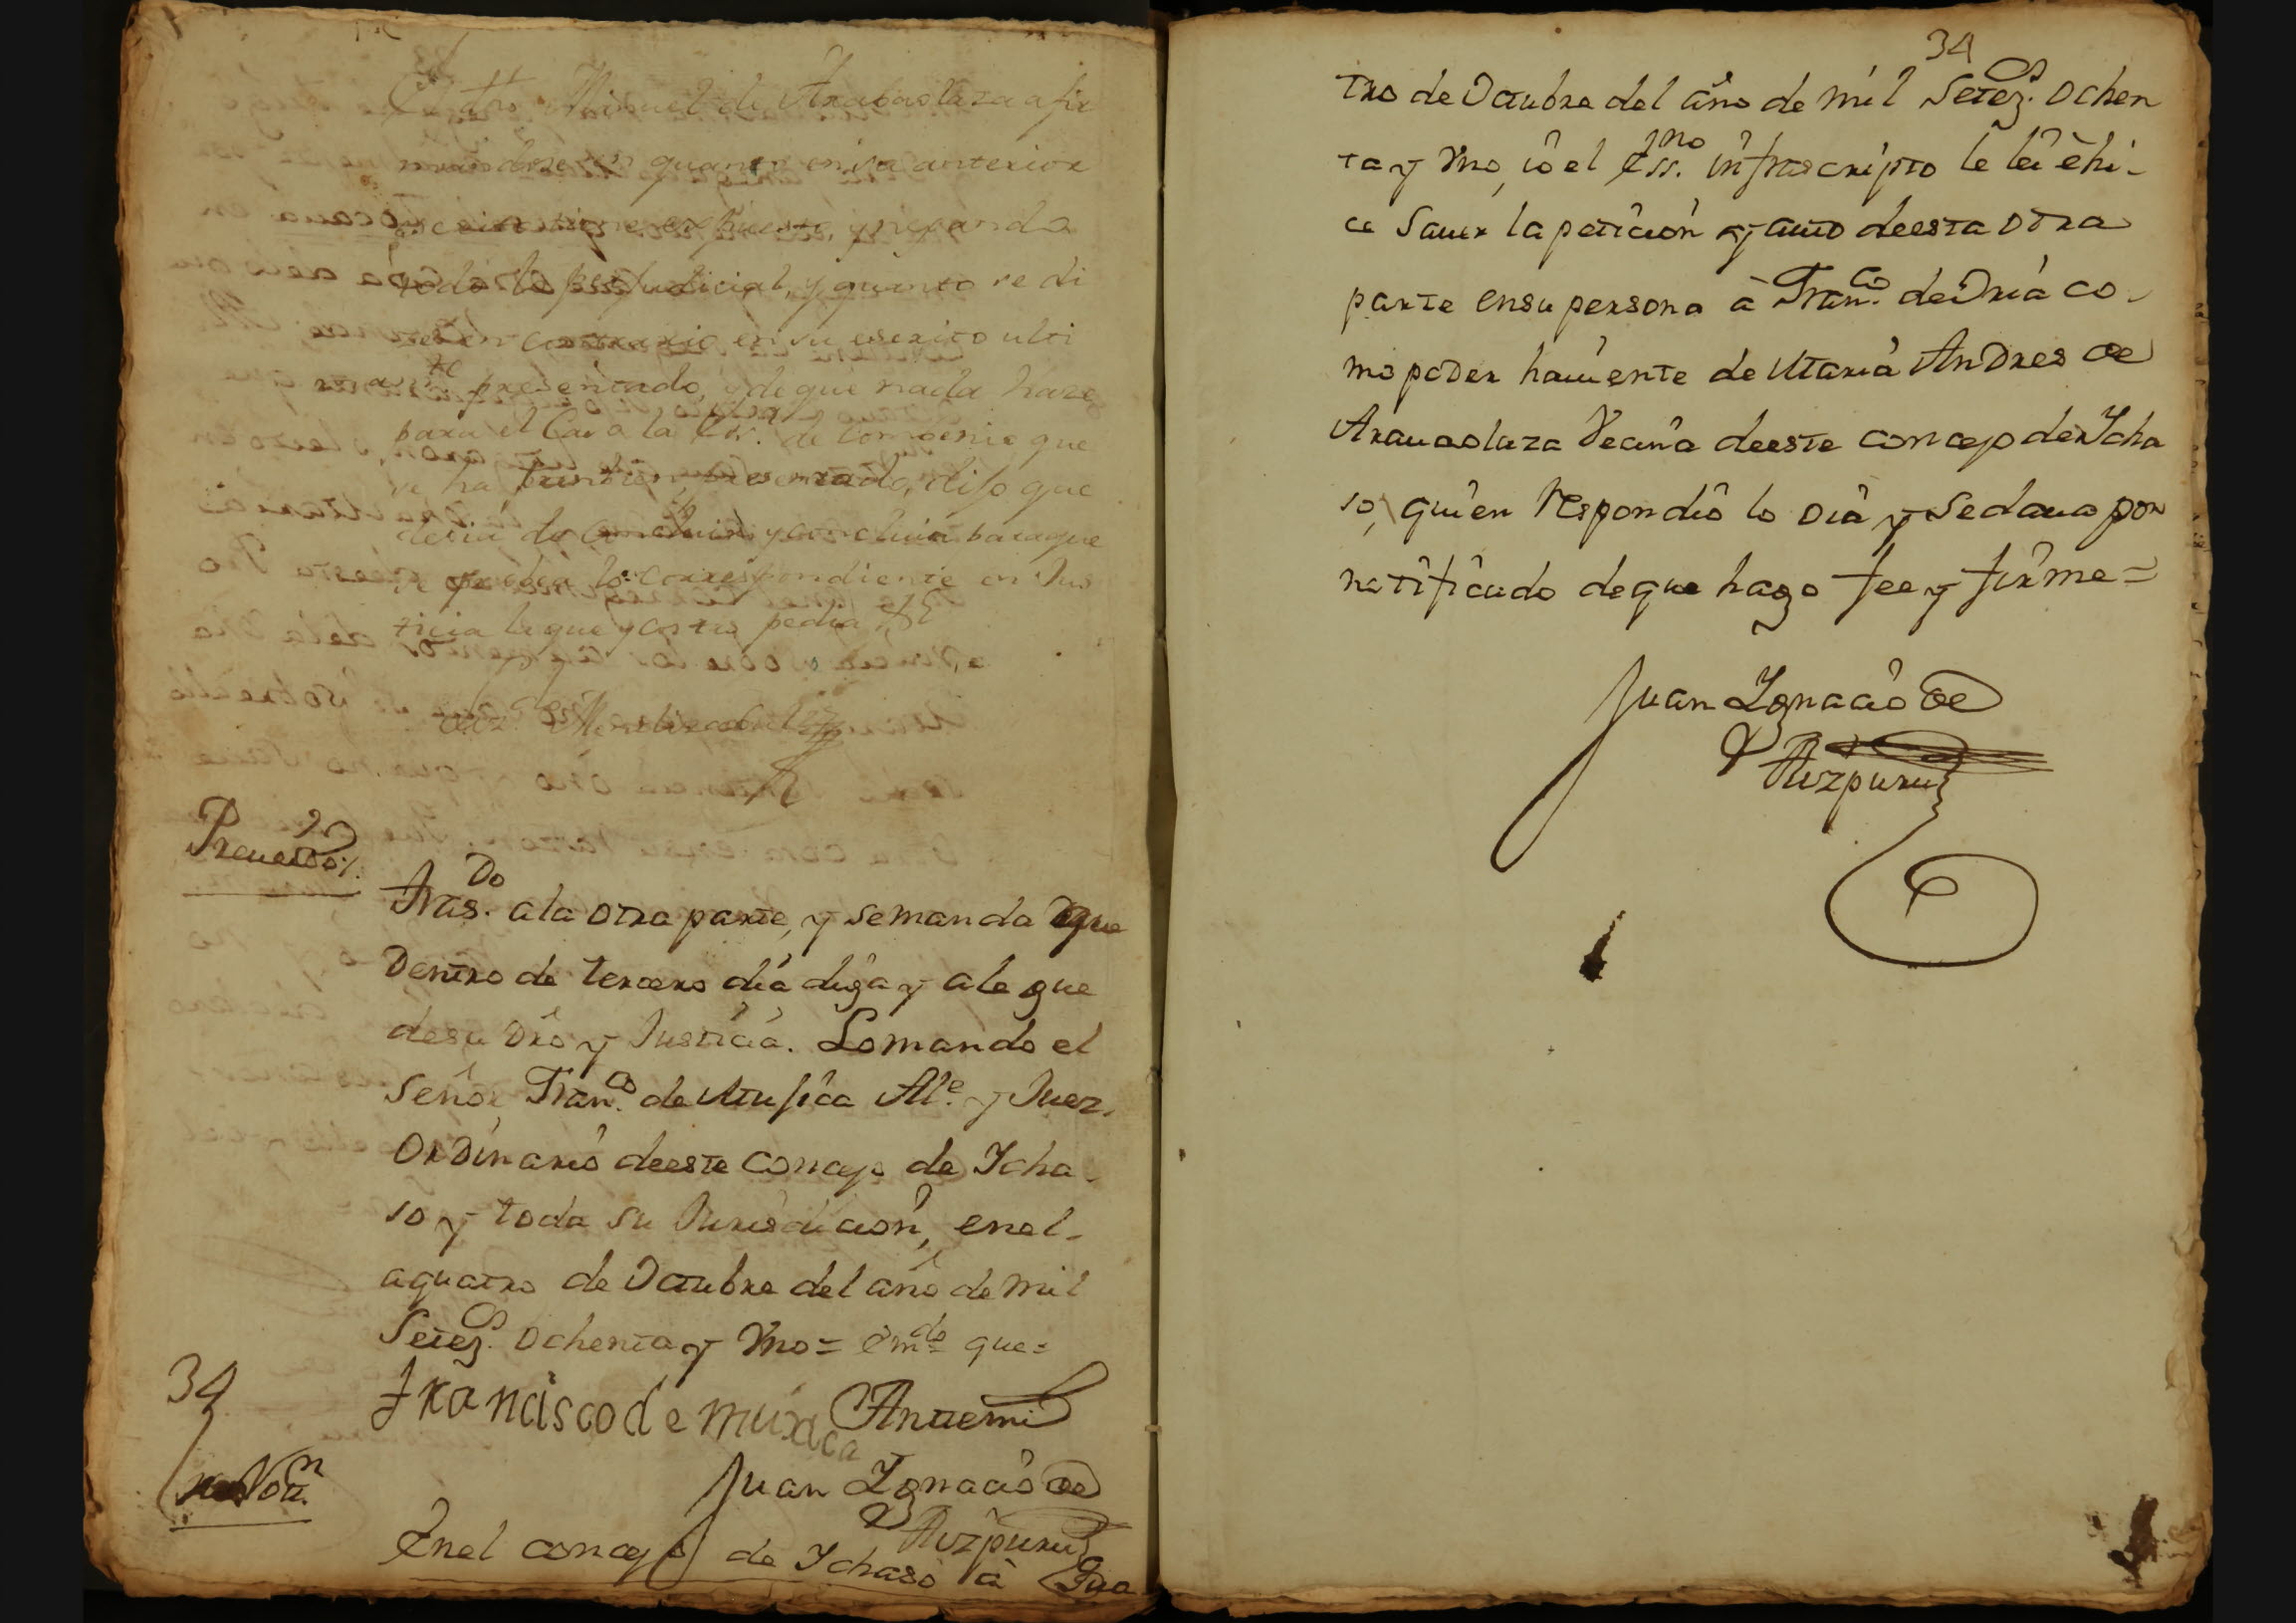 El dho Miguel de Arabaolaza afir
mandose en quanto en su anterior
tiene expuesto, y negando
todo lo perjudicial, y quanto se di
ce en contrario en su escrito ulti
presentado, y de que nada haze
para el Caso la de Compromiso que
se ha tambien presentado, dijo que
devia de Concluir y concluia para que
se provea lo correspondiente en Jus
ticia la que y costas pedia, &
Mendizabal
Proueido
Tras.do a la otra parte, y se manda que
Dentro de tercero dia diga y alegue
de su Dro y Justicia. Lo mando el
Señor Fran.co de Muxica Al.e y Juez
Ordinario de este Concejo de Ycha
so y toda su Jurisdicion, en el
a quatro de Octubre del año de mil
Setez.s Ochenta y Vno = em.do que =
Francisco de muxica Ante mi
Juan Ignacio de
Aizpuru
34
Not.n
En el concejo de Ychaso à Qua
34
tro de Octubre del año de mil Setez.s Ochen
ta y Vno, io el Ess.no infrascripto le lei è hi-
ce Sauer la peticion y auto de esta otra
parte en su persona à Fran.co de Oria co-
mo poder hauiente de Maria Andres de
Arauaolaza Vecina de este concejo de Ycha
so, quien Respondiò lo Oia y se daua por
notificado de que hago fee y firme =
Juan Ignacio de
Aizpuru